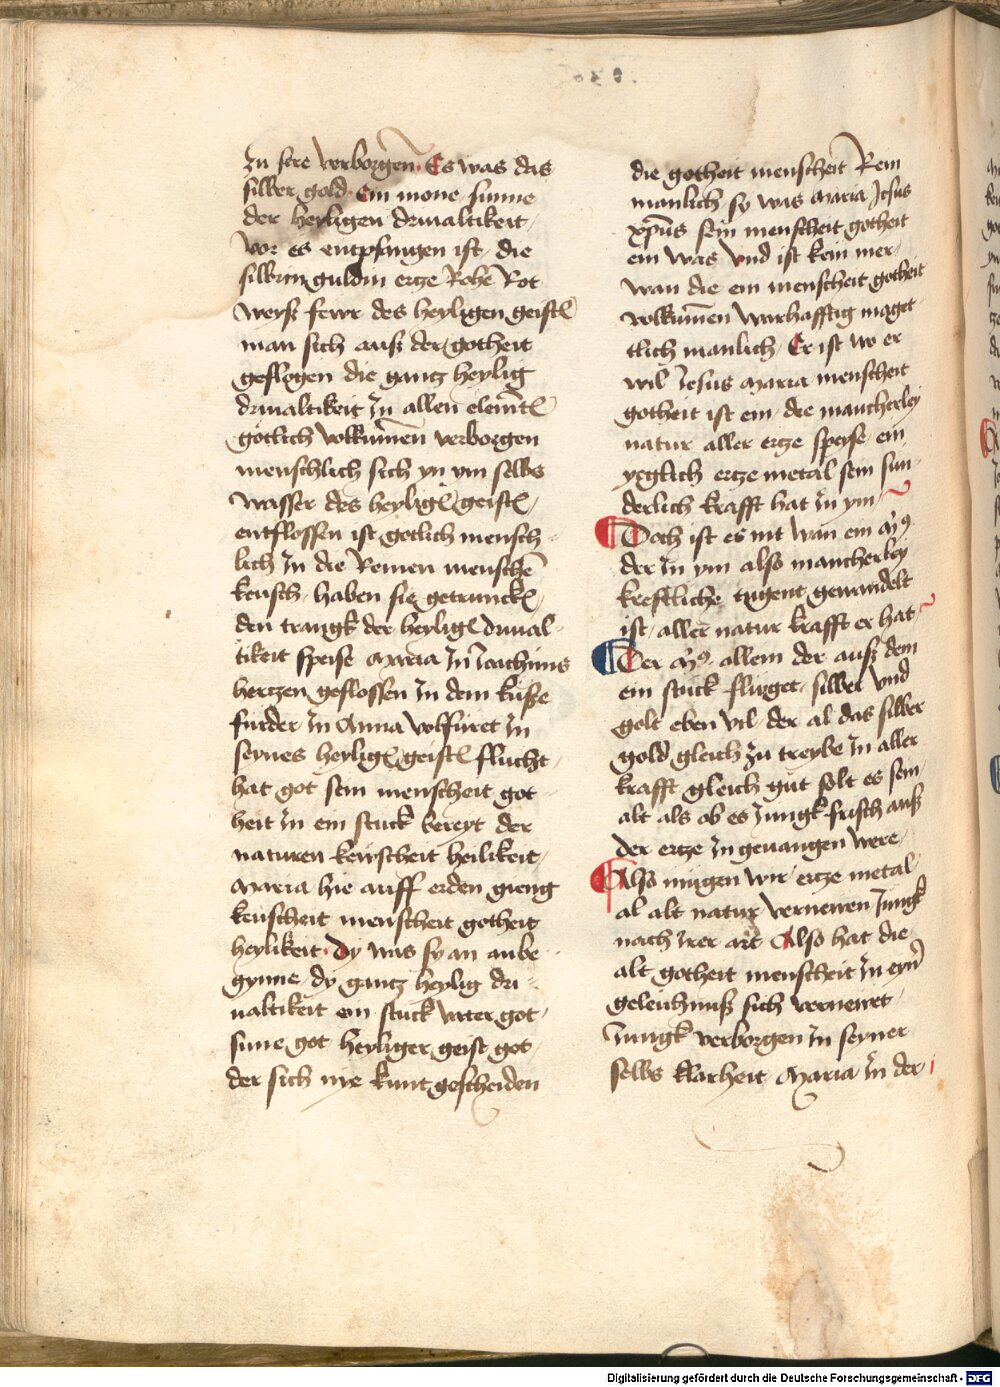 zu sere verborgen. Es was das
silber gold. Ein mone sunne
der heyligen driualtikeit,
vor es entpfangen ist, die
silbrin guldin ertze Rohe Rot
weyß fewr des heyligen geists
man sich auß der gotheit
geflogen die gantz heylig
driualtikeit Jn allen element
gotlich volkumen verborgen
menschlich sich yn ym selbs
wasser des heylige geists,
entflossen ist gotlich mensch
lich Jn die Reinen menschē
keusch, haben sie getruncke,
den trangk der heylige driual-
tikeit speise Maria Jn Joachims
hertzen geflossen Jn dem kusse
furder Jn Anna volfuret Jn
seynes heylige geists flucht,
hat got sein menscheit got
heit Jn ein stuck bereyt der
naturen kewscheit heilikeit,
Maria hie auff erden gieng
keuscheit menscheit gotheit
heylikeit. Dy was sy an anbe
gynne, dy gantz heylig dri-
ualtikeit ein stuck vater got,
sune got heyliger geist got,
der sich nye kunt gescheiden
die gotheit menscheit Rein
manlich, sy was Maria Jesus
xp̄us sein menscheit gotheit
ein was vnd ist kein mer,
wan die ein menscheit gotheit
volkumen warhafftig maget
tlich manlich, Er ist wo er
wil Jesus Maria menscheit
gotheit ist ein, die mancherley
natur aller ertze speyse, ein
yeglich ertze metal sein sun-
derlich krafft hat Jn ym,
Doch ist es nit wan ein
der Jn ym also mancherley
kreftliche tugent gewandelt
ist, aller natur krafft er hat
Der allein der auß dem
ein stuck, silber vnd
golt eben vil, der al das silber
gold gleich zu treybe Jn aller
krafft gleich gut, solt es sein
alt als ob es Jungk frisch auß
der ertze Jn gewangen were,
Also mügen wir ertze metal
al alt natur vernewen Jungk
nach irer art Also hat die
alt gotheit menscheit Jn eyn
geleichnuß sich vernewet,
Jungk verborgen Jn seyner
selbs klarheit Maria Jn der
Digitalisierung gefördert durch die Deutsche Forschungsgemeinschaft - DFG